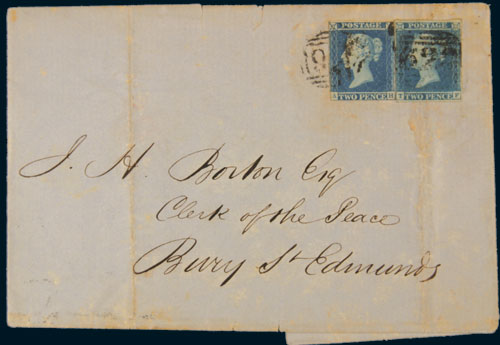 POSTAGE POSTAGE
TWO PENCE TWO PENCE
J. H. Borton Esq
Clerk of the Peace
Bury St Edmunds